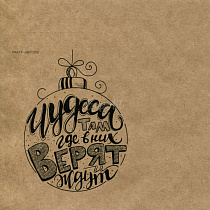 Чудеса
там
где в них
верят
и
ждут